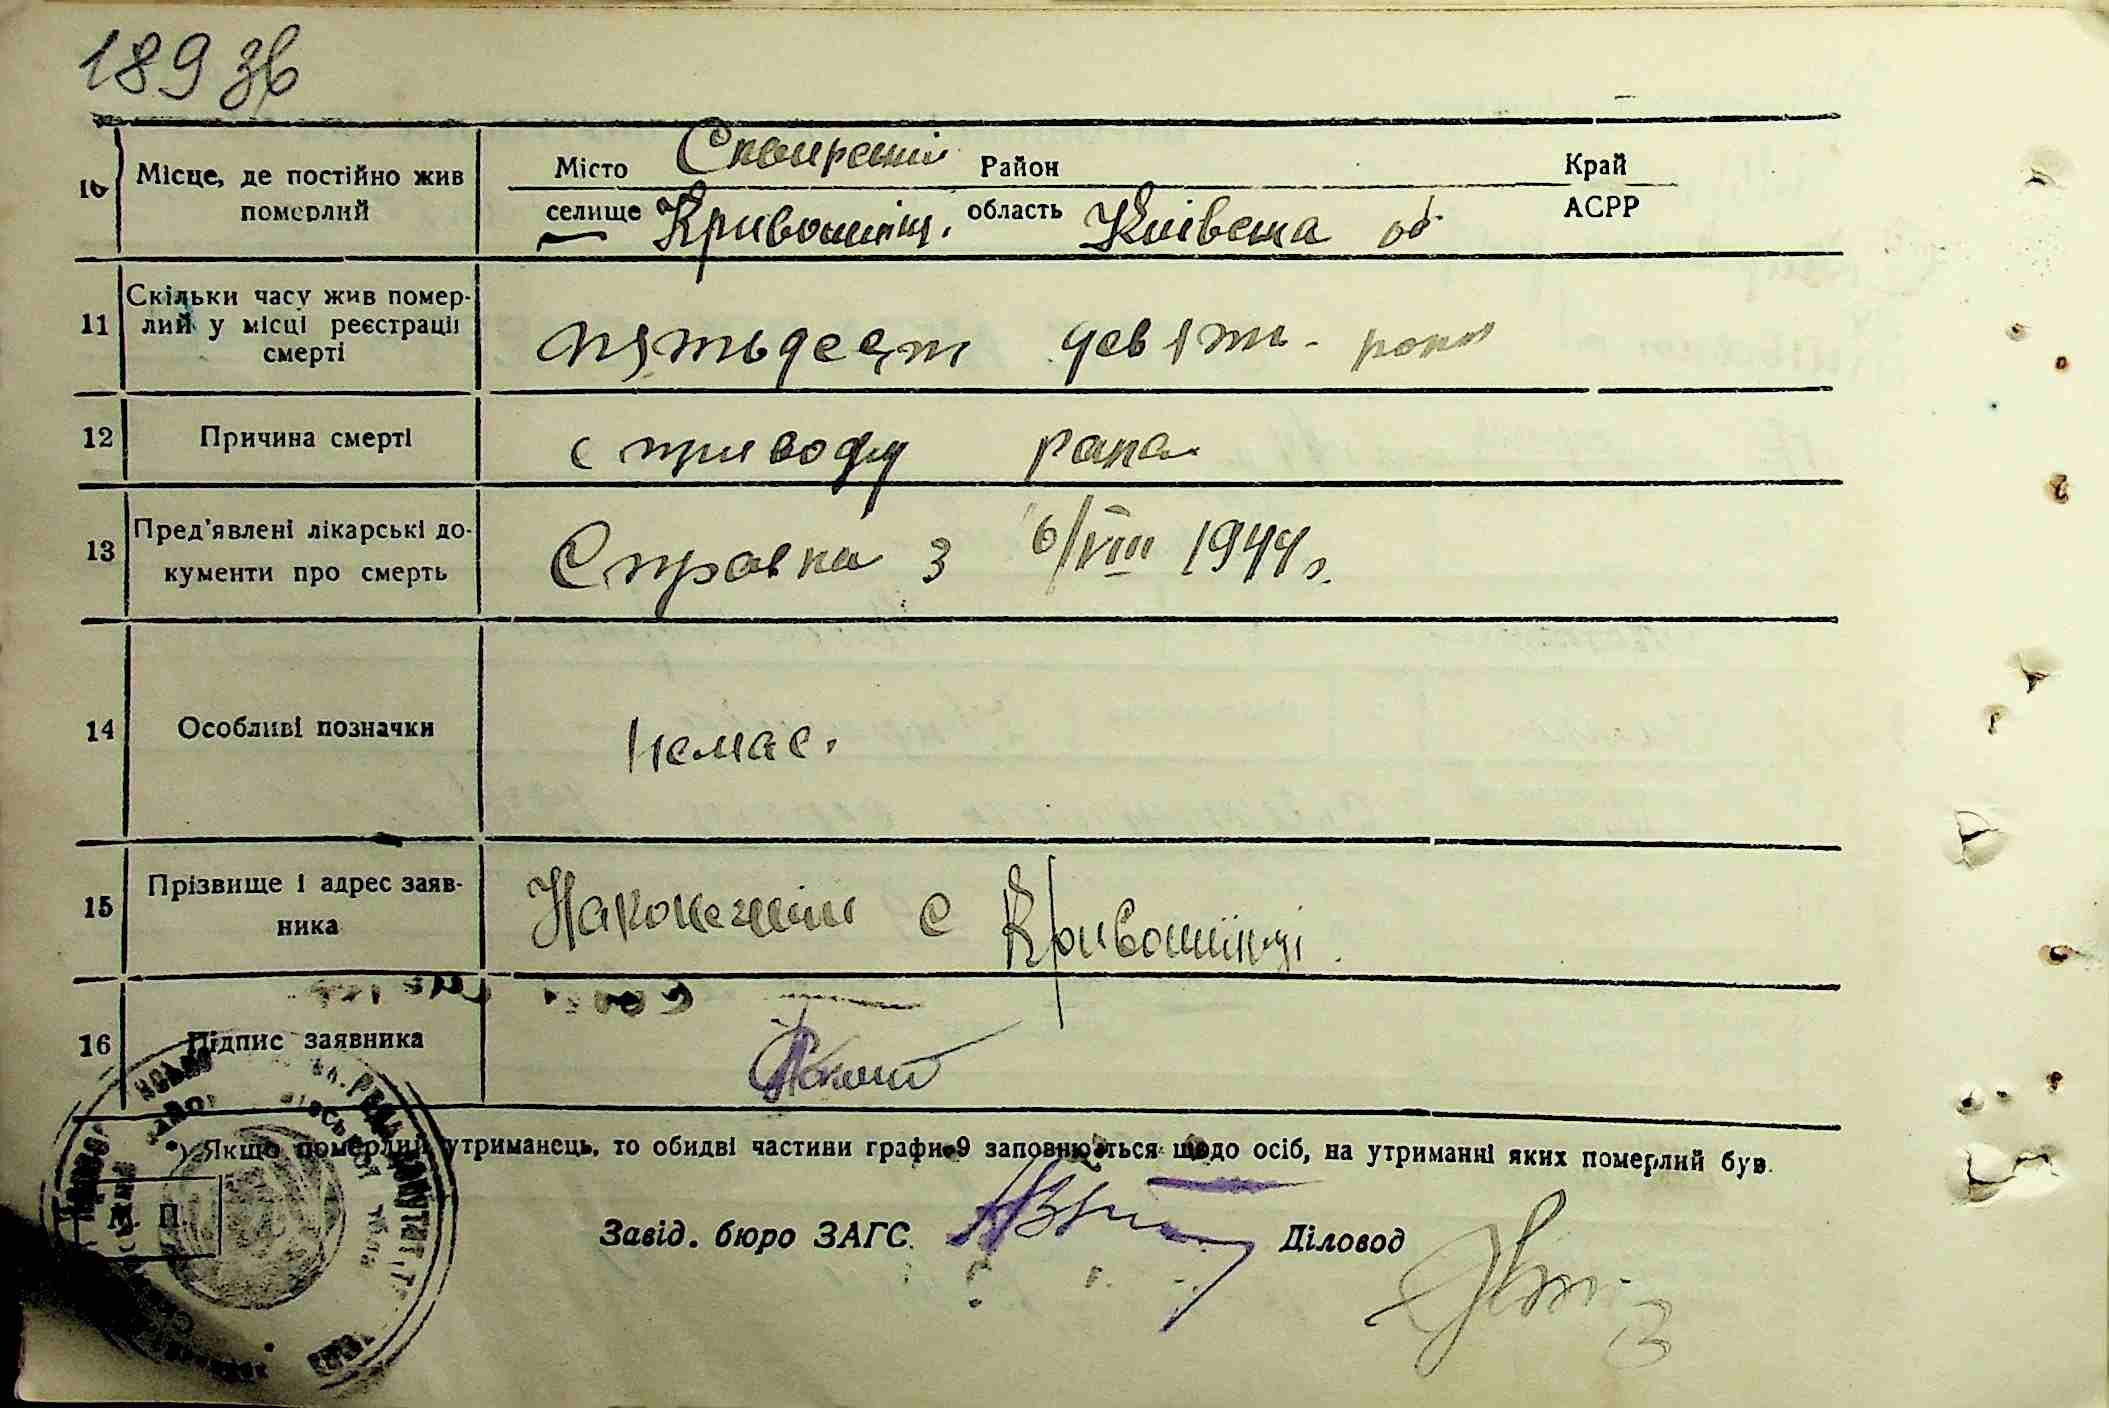 189 зв
10 Місце, де постійно жив померлий Місто Сквирский Район Край
селище Кривошиїнц. область Київська об АСРР
11 Скільки часу жив помер-
лий у місці реєстрації
смерті
пятьдесят девять роки
12 Причина смерті с приводу рака
13 Пред'явлені лікарські до-
кументи про смерть
Справка з 6/VIII 1944 г.
14 Особливі позначки немає.
15 Прізвище і адрес заяв-
ника
с Кривошиїнці.
16 Підпис заявника
*) Якщо померлий утриманець, то обидві частини графи 9 заповнюються щодо осіб, на утриманні яких померлий був.
М. П.
Завід. бюро ЗАГС. Діловод